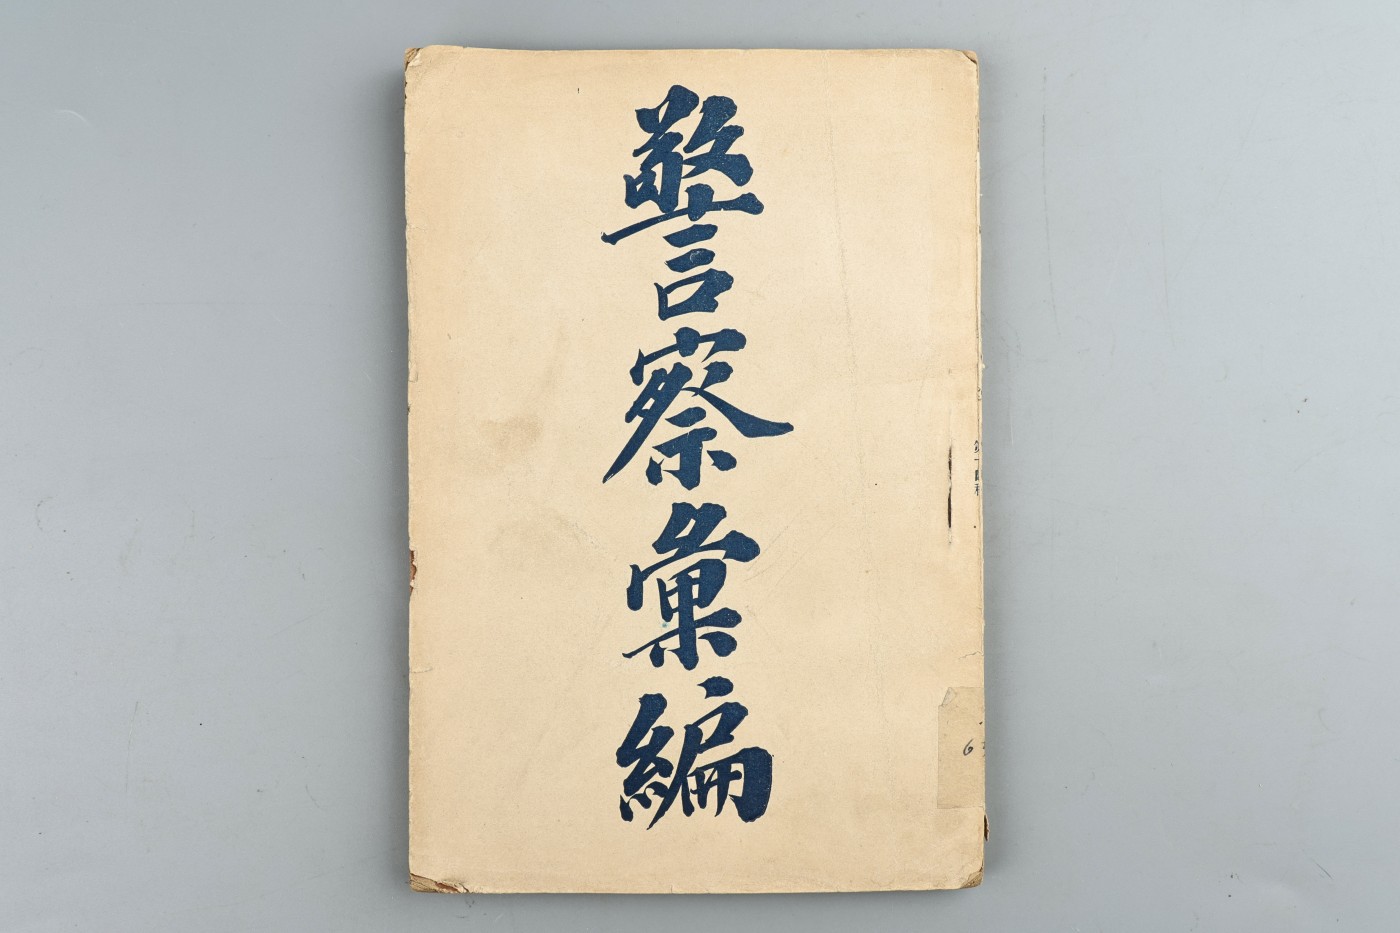 警察彙編
6